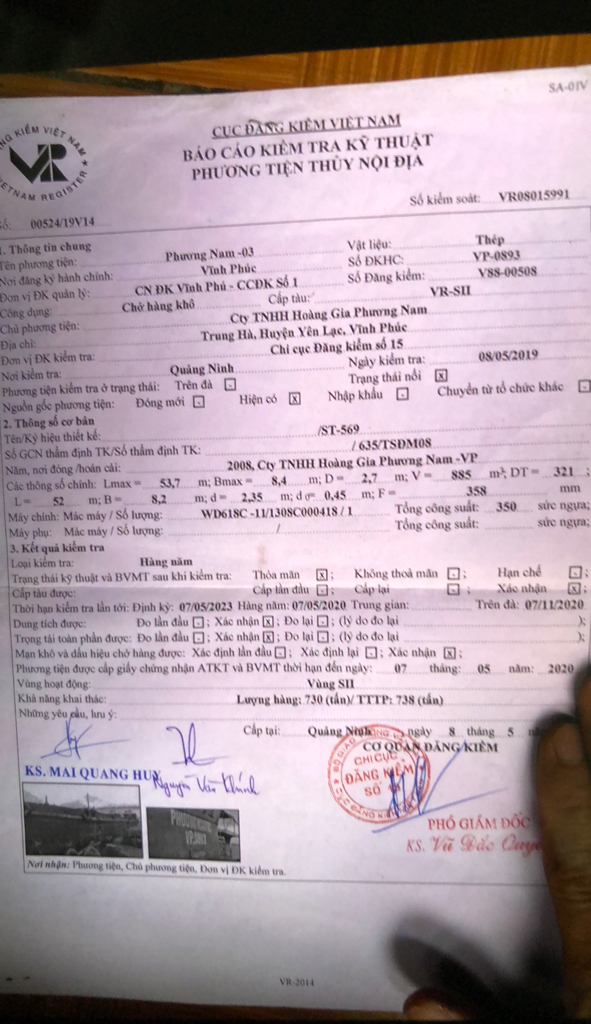 SA-01V
CỤC ĐĂNG KIỂM VIỆT NAM
BÁO CÁO KIỂM TRA KỸ THUẬT
PHƯƠNG TIỆN THỦY NỘI ĐỊA
VR
Số kiểm soát: VR08015991
Số: 00524/19V14
1. Thông tin chung
Tên phương tiện: Phương Nam -03 Vật liệu: Thép
Nơi đăng ký hành chính: Vĩnh Phúc Số ĐKHC: VP-0893
Đơn vị ĐK quản lý: CN ĐK Vĩnh Phú - CCĐK Số 1 Số Đăng kiểm: V88-00508
Công dụng: Chở hàng khô Cấp tàu: VR-SII
Chủ phương tiện: Cty TNHH Hoàng Gia Phương Nam
Địa chỉ: Trung Hà, Huyện Yên Lạc, Vĩnh Phúc
Đơn vị ĐK kiểm tra: Chi cục Đăng kiểm số 15
Nơi kiểm tra: Quảng Ninh Ngày kiểm tra: 08/05/2019
Phương tiện kiểm tra ở trạng thái: Trên đà - Trạng thái nổi X
Nguồn gốc phương tiện: Đóng mới - Hiện có X Nhập khẩu - Chuyển từ tổ chức khác -
2. Thông số cơ bản
Tên/Ký hiệu thiết kế: /ST-569
Số GCN thẩm định TK/Số thẩm định TK: / 635/TSĐM08
Năm, nơi đóng /hoán cải: 2008, Cty TNHH Hoàng Gia Phương Nam -VP
Các thông số chính: Lmax = 53,7 m; Bmax = 8,4 m; D = 2,7 m; V = 885 m³; DT = 321 ;
L = 52 m; B = 8,2 m; d = 2,35 m; d = 0,45 m; F = 358 mm
Máy chính: Mác máy / Số lượng: WD618C -11/1308C000418 / 1 Tổng công suất: 350 sức ngựa;
Máy phụ: Mác máy / Số lượng: / Tổng công suất: sức ngựa;
3. Kết quả kiểm tra
Loại kiểm tra: Hàng năm
Trạng thái kỹ thuật và BVMT sau khi kiểm tra: Thỏa mãn X ; Không thoả mãn - ; Hạn chế - ;
Cấp tàu được: Cấp lần đầu - ; Cấp lại - ; Xác nhận X ;
Thời hạn kiểm tra lần tới: Định kỳ: 07/05/2023 Hàng năm: 07/05/2020 Trung gian: Trên đà: 07/11/2020
Dung tích được: Đo lần đầu - ; Xác nhận X ; Đo lại - ; (lý do đo lại );
Trọng tải toàn phần được: Đo lần đầu - ; Xác nhận X ; Đo lại - ; (lý do đo lại );
Mạn khô và dấu hiệu chở hàng được: Xác định lần đầu - ; Xác định lại - ; Xác nhận X ;
Phương tiện được cấp giấy chứng nhận ATKT và BVMT thời hạn đến ngày: 07 tháng: 05 năm: 2020
Vùng hoạt động: Vùng SII
Khả năng khai thác: Lượng hàng: 730 (tấn)/ TTTP: 738 (tấn)
Những yêu cầu, lưu ý:
Cấp tại: Quảng Ninh, ngày 8 tháng 5
CƠ QUAN ĐĂNG KIỂM
CHI CỤC
ĐĂNG KIỂM
SỐ
KS. MAI QUANG HUY
Nguyễn Văn Khánh
PHÓ GIÁM ĐỐC
KS. Vũ Đắc
Nơi nhận: Phương tiện, Chủ phương tiện, Đơn vị ĐK kiểm tra.
VR-2014